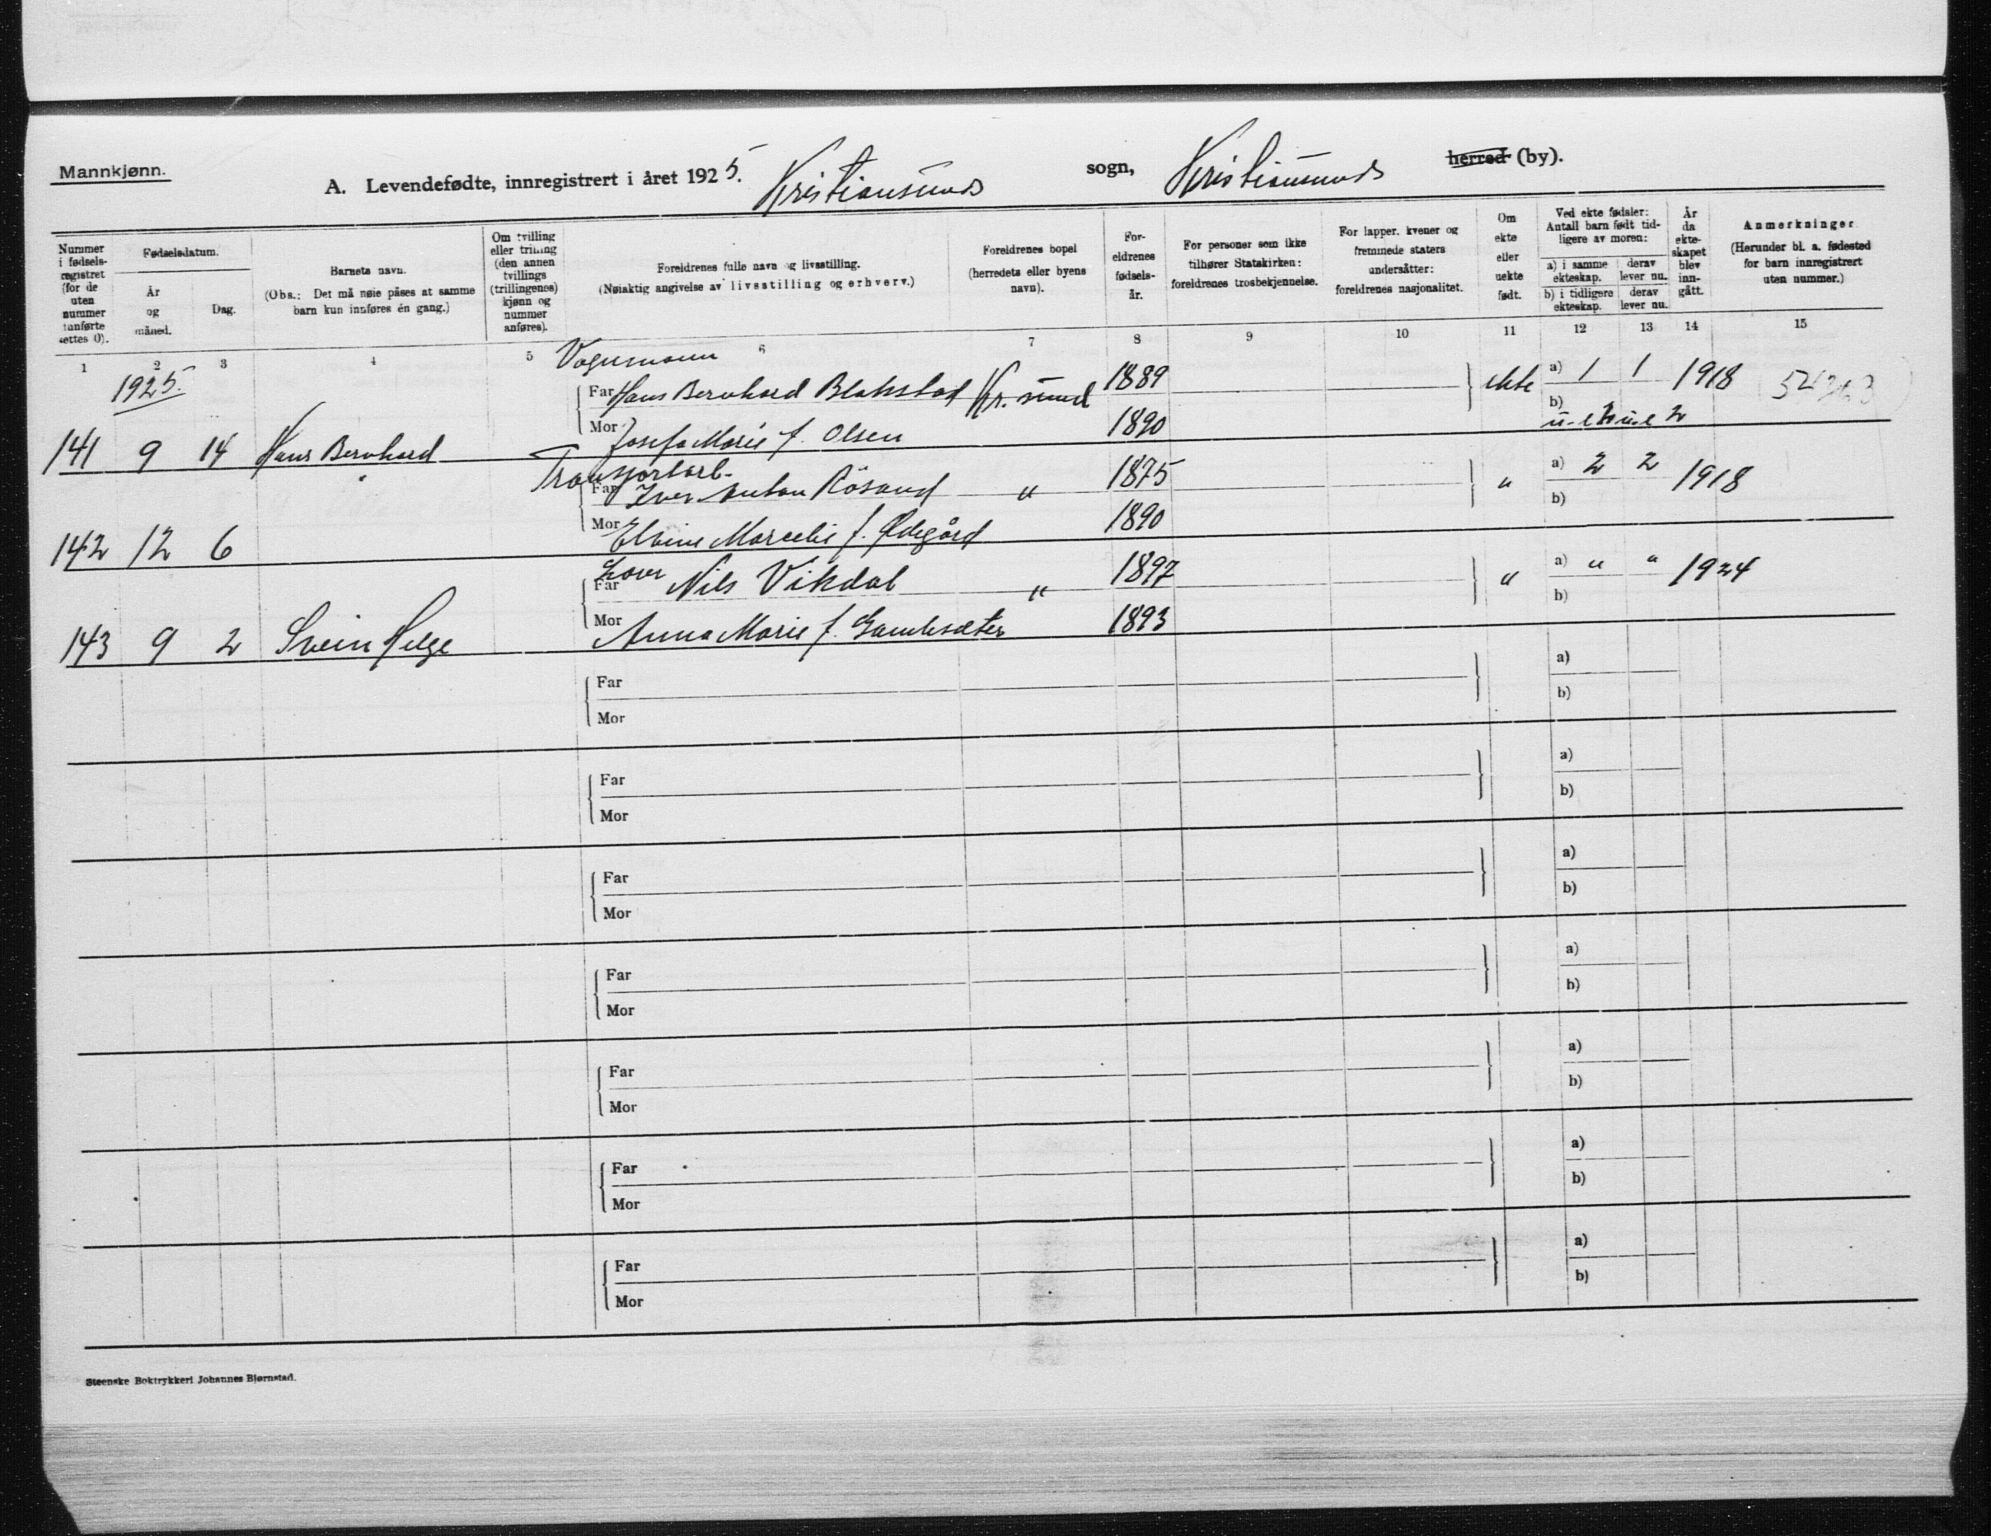 Mannkjønn.
A. Levendefødte, innregistrert i året 1925. Kristiansunds sogn, Kristiansunds herred (by).
Nummer i fødsels-registret (for de uten nummer tanførte settes 0).
Fødselsdatum.
År og måned.
Dag.
Barnets navn.
(Obs.: Det må nøie påses at samme barn kun innføres én gang.)
Om tvilling eller trilling (den annen tvillings (trillingenes) kjønn og nummer anføres).
Foreldrenes fulle navn og livsstilling.
(Nøiaktig angivelse av livsstilling og erhverv.)
Foreldrenes bopel (herredets eller byens navn).
For-eldrenes fødsels-år.
For personer som ikke tilhører Statskirken: foreldrenes trosbekjennelse.
For lapper, kvener og fremmede staters undersåtter: foreldrenes nasjonalitet.
Om ekte eller uekte født.
Ved ekte fødsler: Antall barn født tid-ligere av moren:
a) i samme ekteskap.
derav lever nu.
b) i tidligere ekteskap.
derav lever nu.
År da ekte-skapet blev inn-gått.
Anmerkninger
(Herunder bl. a. fødested for barn innregistrert uten nummer.)
1 2 3 4 5 6 7 8 9 10 11 12 13 14 15
1925.
Vognmann
Far Hans Bernhard Blakstad Kr. sund 1889 ekte a) 1 1 1918
b)
141 9 14 Hans Bernhard Mor Josefa Marie f. Olsen 1890 u.e 2 u.e 2
Transportarb.
Far Iver Anton Rösand " 1875 " a) 2 2 1918
b)
142 12 6 Mor Marcelie f. Ødegård 1890
Far Nils Vikdal " 1897 " a) " " 1924
b)
143 9 2 Svein Helge Mor Anna Marie f. 1893
Far a)
Mor b)
Far a)
Mor b)
Far a)
Mor b)
Far a)
Mor b)
Far a)
Mor b)
Far a)
Mor b)
Far a)
Mor b)
Steenske Boktrykkeri Johannes Bjørnstad.